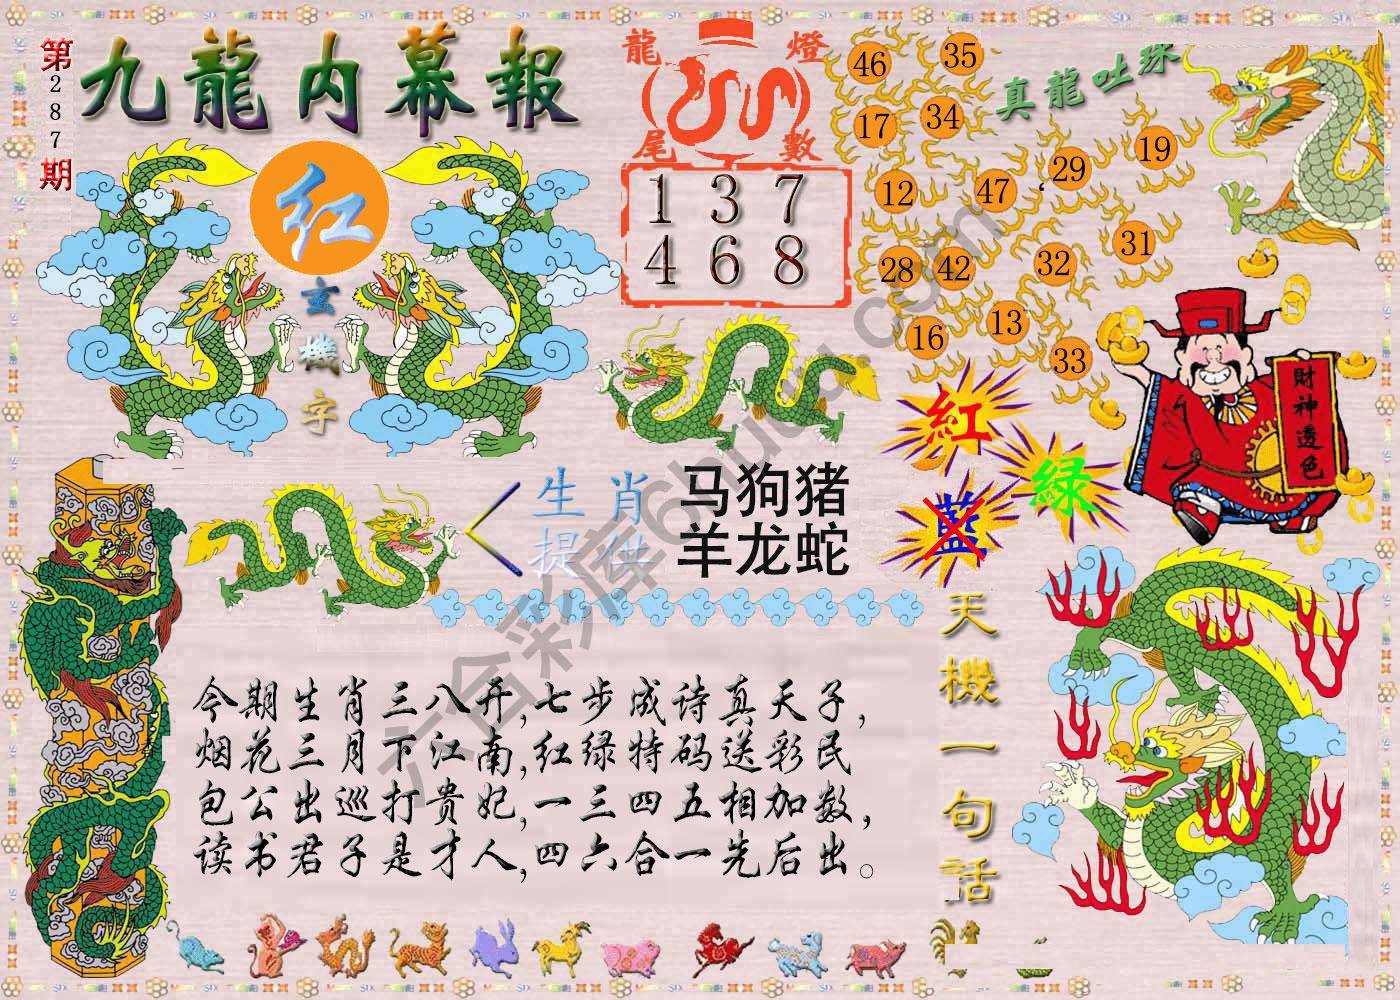 第287期
九龍內幕報
红
玄機字
龍燈尾數
1 3 7
4 6 8
真龍吐珠
46 35
17 34
29 19
12 47
31
28 42 32
16 13
33
財神透色
紅
藍 绿
生肖
提供
马狗猪
羊龙蛇
天機一句話
今期生肖三八开,七步成诗真天子,
烟花三月下江南,红绿特码送彩民
包公出巡打贵妃,一三四五相加数,
读书君子是才人,四六合一先后出。
六合彩库6hudd.com